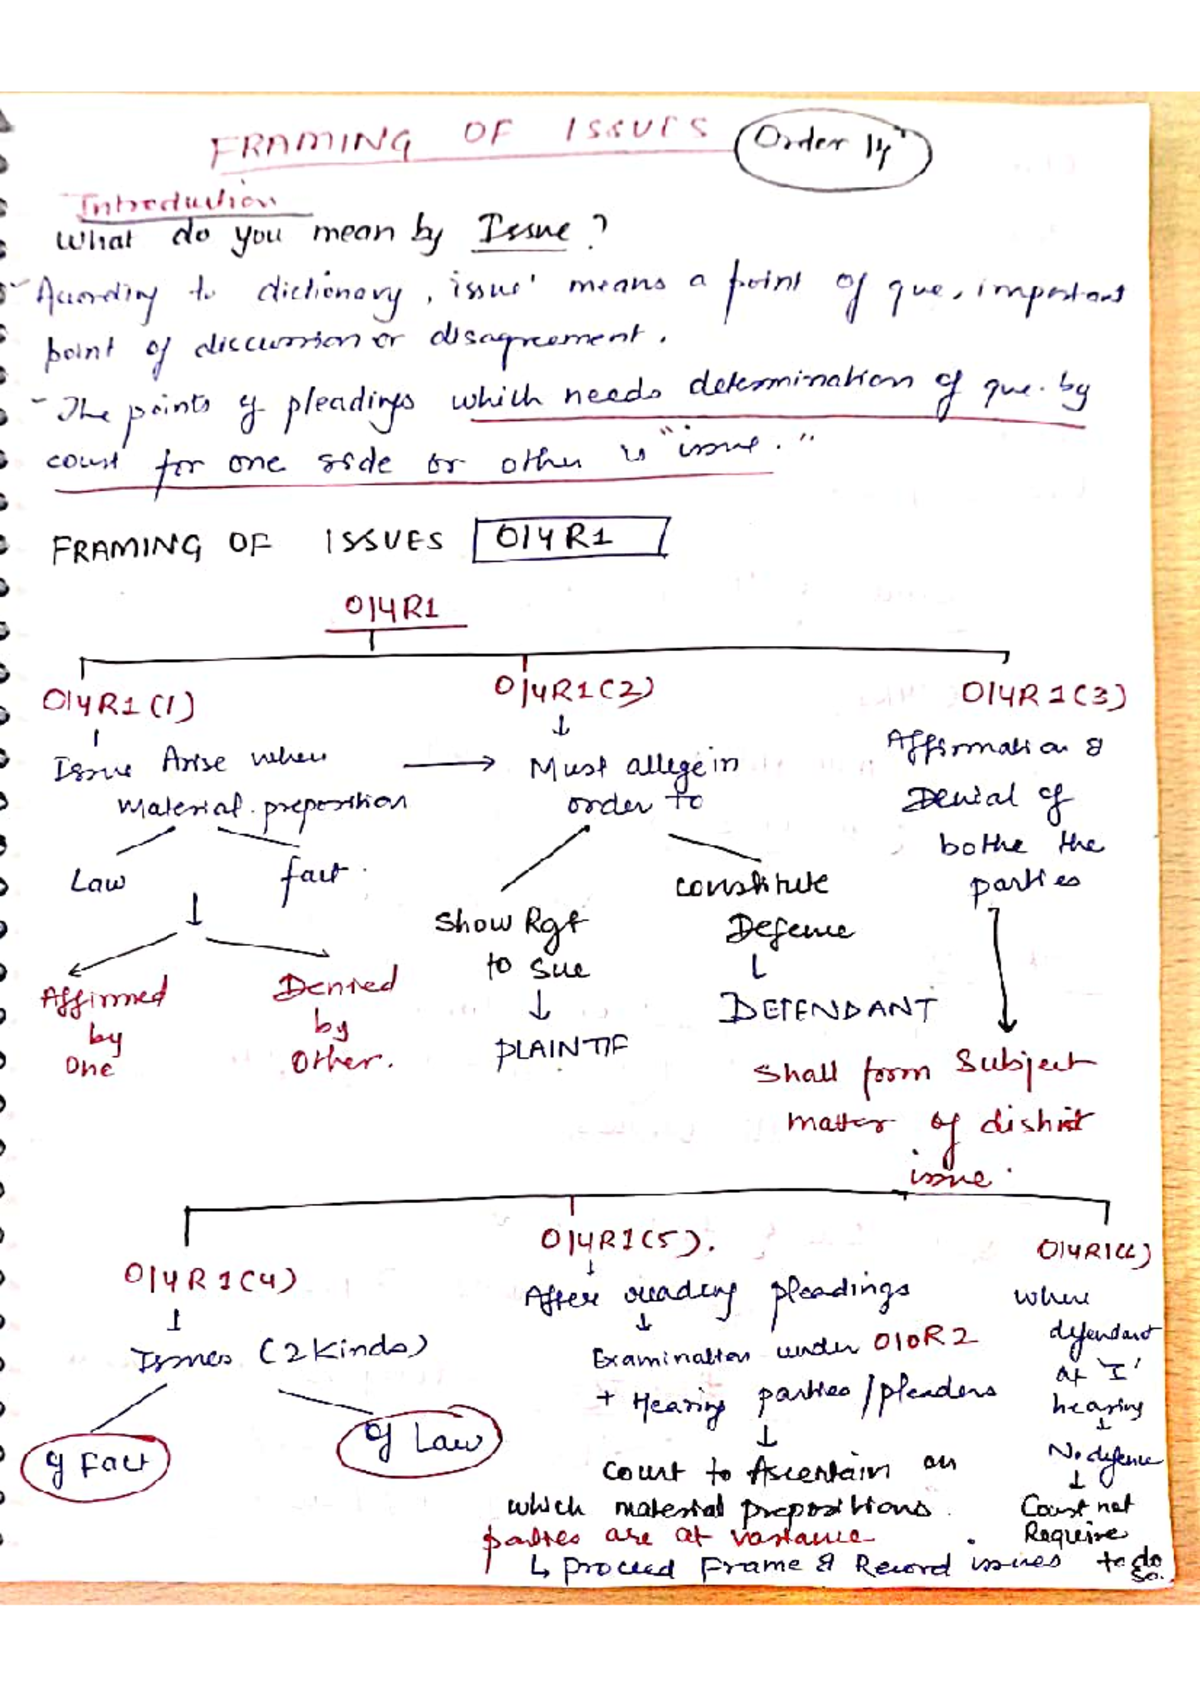 FRAMING OF ISSUES Order 14
Introduction
What do you mean by Issue?
- According to dictionary, 'issue' means a point of que, important
point of discussion or disagreement.
- The points of pleadings which needs determination of que. by
court for one side or other is "issue."
FRAMING OF ISSUES O14R1
O14R1
O14R1(1) O14R1(2) O14R1(3)
Issue Arise when → Must allege in Affirmation &
Material preposition order to Denial of
Law fact. bothe the
parties
Show Rgt constitute
to Sue Defence
Affirmed Denied PLAINTIF DEFENDANT
by by
One Other.
Shall form Subject
matter of distinct
issue.
O14R1(4) O14R1(5). O14R1(6)
After reading pleadings where
Issues (2 Kinds) Examination under O10R2 defendant
+ Hearing parties/pleaders at 'I'
hearing
of Fact of Law
Court to Ascertain on No defence
which material prepositions Court not
parties are at variance Require
↳ Proceed Frame & Record issues to do
so.